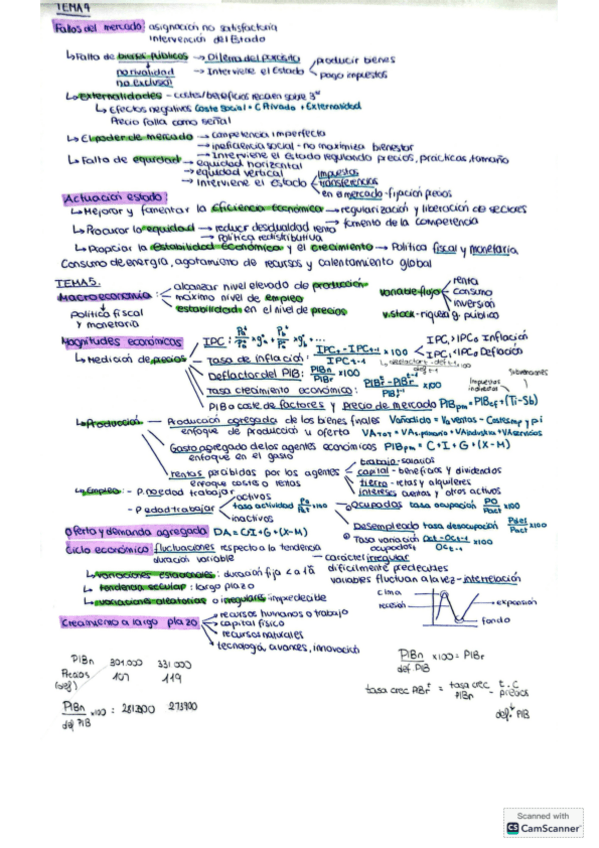 TEMA 4
Fallos del mercado: asignación no satisfactoria
intervención del Estado
↳ Falta de bienes públicos → Dilema del porosito producir bienes
no rivalidad → Interviene el Estado pago impuestos
no exclusi
↳ Externalidades - costes/beneficios recaen sobre 3º
↳ Efectos negativos Coste Social = C Privado + Externalidad
Precio falla como señal
↳ El poder de mercado → competencia imperfecta
→ ineficiencia social - no maximiza bienestar
→ Interviene el Estado regulando precios, prácticas, tamaño
↳ Falta de equidad → equidad horizontal
→ equidad vertical impuestos
→ Interviene el Estado transferencias
en el mercado - fijación precios
Actuación estado:
↳ Mejorar y fomentar la eficiencia económica → regularización y liberación de sectores
→ fomento de la competencia
↳ Procurar la equidad → reducir desdualdad renta
→ Política redistributiva
↳ Propiciar la estabilidad económica y el crecimiento → Política fiscal y monetaria
Consumo de energía, agotamiento de recursos y calentamiento global
TEMA 5.
Macroeconomía: alcanzar nivel elevado de producción
máximo nivel de empleo
estabilidad en el nivel de precios
Política fiscal
y monetaria
variable flujo renta
consumo
inversión
v.stock - riqueza g. público
Magnitudes económicas
↳ Medición de precios IPC:
IPC₁ > IPC₀ Inflación
IPC₁ < IPC₀ Deflación
Tasa de inflación: IPCt - IPCt-1 / IPCt-1 x100
Deflactor del PIB: PIBn / PIBr
Tasa crecimiento económico: PIBrt - PIBrt-1 / PIBrt-1 x100
Impuestos indirectos Subvenciones
PIB a coste de factores y precio de mercado PIBpm = PIBcf + (Ti - Sb)
↳ Producción → Producción agregada de los bienes finales Vañadido = Vventas - Costesmp y pi
enfoque de producción u oferta VATOT = VAs.primario + VAindustria + VAservicios
Gasto agregado de los agentes económicos PIBpm = C + I + G + (X-M)
enfoque en el gasto
rentas percibidas por los agentes
enfoque costes o rentas
trabajo - salarios
capital - beneficios y dividendos
tierra - retas y alquileres
interess cuentas y otros activos
↳ Empleo: - P. no edad trabajar
- P edad trabajar activos
tasa actividad x100
inactivos
Ocupados tasa ocupación PO / Pact x100
Desempleado tasa desocupación Pdel / Pact x100
Tasa variación ocupados: Oct - Oct-1 / Oct-1 x100
Oferta y demanda agregada DA = C + I + G + (X-M)
Ciclo económico: fluctuaciones respecto a la tendencia
duración variable
carácter irregular
difícilmente predecibles
variables fluctuan a la vez - interrelación
↳ variaciones estacionales: duración fija < a 1a
↳ tendencia secular: largo plazo
↳ variaciones aleatorias o irregulares: impredecible
cima
recesión
expansión
fondo
Crecimiento a largo plazo → recursos humanos o trabajo
→ capital físico
→ recursos naturales
→ tecnología, avances, innovación
PIBn 301.000 331.000
Precios 107 119
(def)
PIBn / def PIB x100 :
PIBn / def. PIB x100 = PIBr
tasa crec PIBr = tasa crec PIBn - t.c precios
def. PIB
Scanned with
CS CamScanner